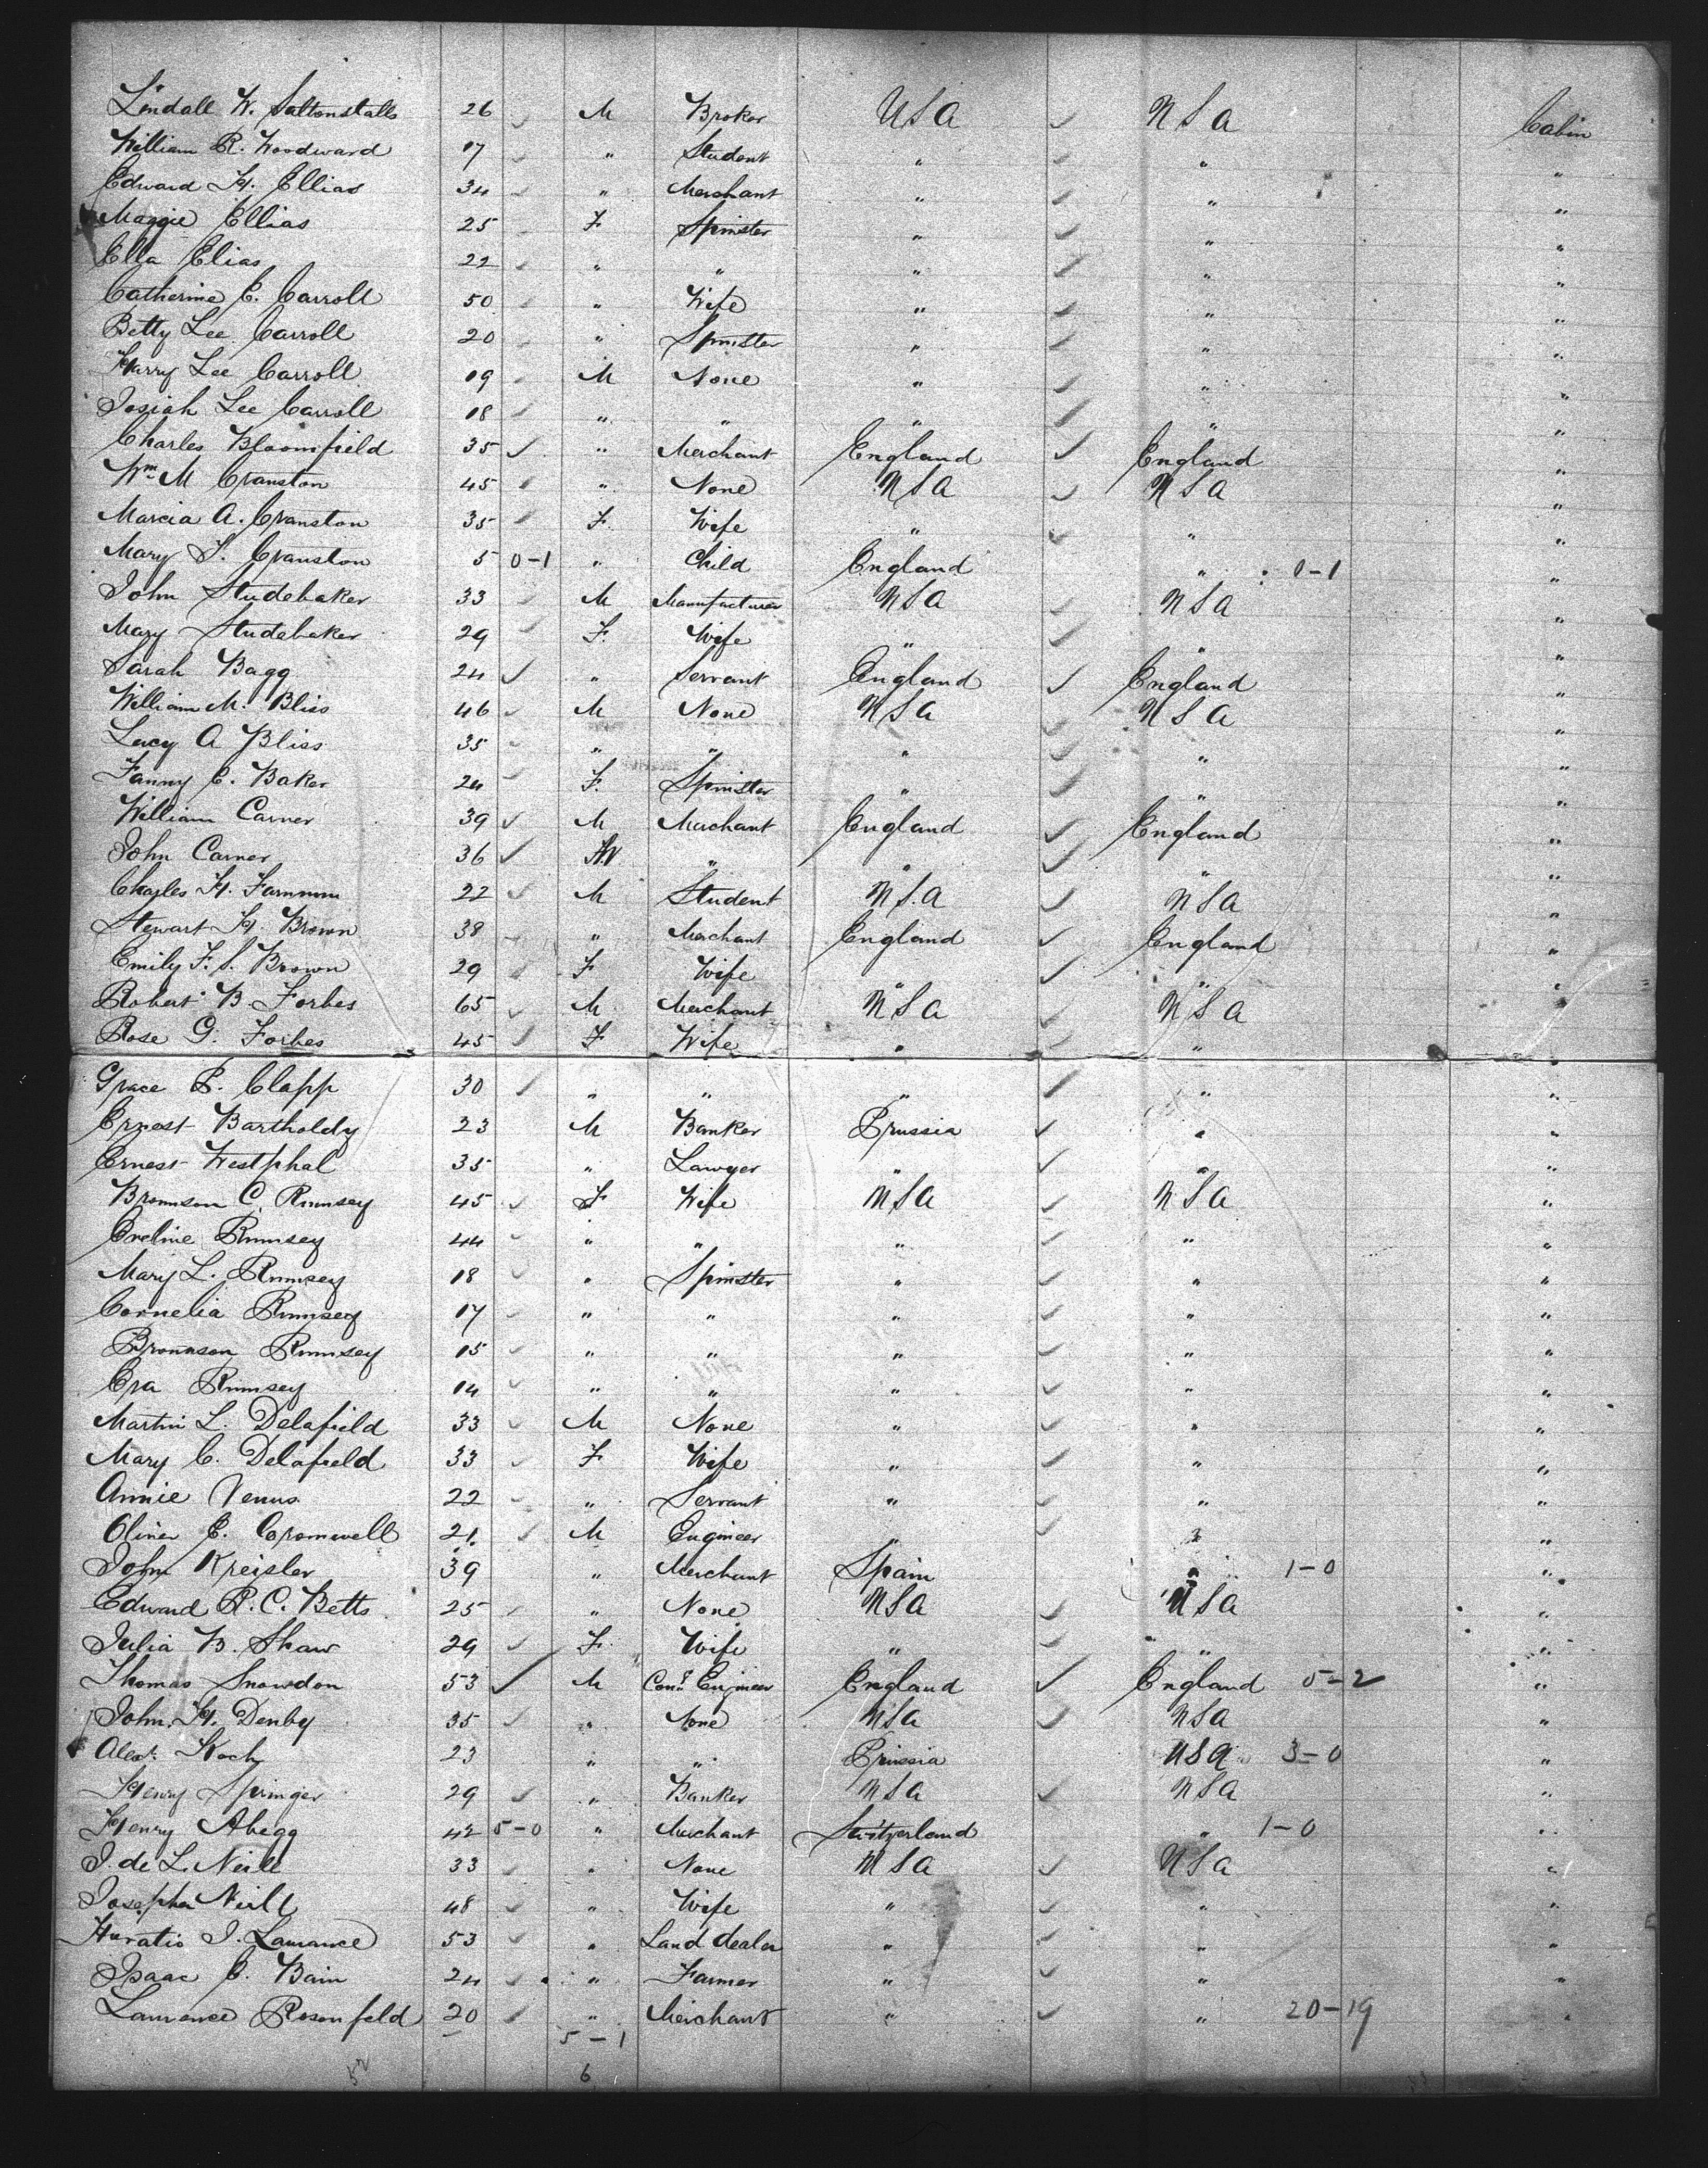 Lindall W. Saltonstalls 26 M Broker USA USA Cabin
William R. Woodward 17 " Student " " "
Edward H. Ellias 34 " Merchant " " "
Maggie Ellias 25 F Spinster " " "
Ella Elias 22 " " " " "
Catherine E. Carroll 50 " Wife " " "
Betty Lee Carroll 20 " Spinster " " "
Harry Lee Carroll 19 M None " " "
Josiah Lee Carroll 18 " " " " "
Charles Bloomfield 35 " Merchant England England "
Wm M Cranston 45 " None USA USA "
Marcia A. Cranston 35 F. Wife " " "
Mary S. Cranston 5 0-1 " Child England " 0-1 "
John Studebaker 33 M Manufacturer USA USA "
Mary Studebaker 29 F. Wife " " "
Sarah Bagg 24 " Servant England England "
William M. Bliss 46 M None USA USA "
Lucy A Bliss 35 " " " " "
Fanny C. Baker 24 F. Spinster " " "
William Carner 39 M Merchant England England "
John Carner 36 M " " " "
Charles H. Farnum 22 M Student U.S.A USA "
Stewart H. Brown 38 " Merchant England England "
Emily F. S. Brown 29 F Wife " " "
Robert B. Forbes 65 M Merchant USA USA "
Rose G. Forbes 45 F Wife " " "
Grace P. Clapp 30 " " " " "
Ernest Bartholdy 23 M Banker Prussia " "
Ernest Westphal 35 " Lawyer " " "
Bronnson C. Rumsey 45 F Wife USA USA "
Eveline Rumsey 44 " " " " "
Mary L. Rumsey 18 " Spinster " " "
Cornelia Rumsey 17 " " " " "
Bronnson Rumsey 15 " " " " "
Eva Rumsey 14 " " " " "
Martin L. Delafield 33 M None " " "
Mary C. Delafield 33 F Wife " " "
Annie Venus 22 " Servant " " "
Oliver E. Cromwell 21. M Engineer " " "
John Kreisler 39 " Merchant Spain " 1-0 "
Edward P. C. Betts 25 " None USA USA "
Julia B. Shaw 29 F. Wife " " "
Thomas Snowdon 53 M Engineer England England 5-2 "
John H. Denby 35 " None USA USA "
Alexr. Koch 23 " " Prussia USA 3-0 "
Henry Springer 29 " Banker USA USA "
Henry Abegg 42 5-0 " Merchant Switzerland " 1-0 "
J. de L. Neill 33 " None USA USA "
Josepha Neill 48 " Wife " " "
Horatio J. Lawrance 53 " Land dealer " " "
Isaac C. Bain 24 " Farmer " " "
Lawrence Rosenfeld 20 " Merchant " " 20-19 "
5-1
52 6